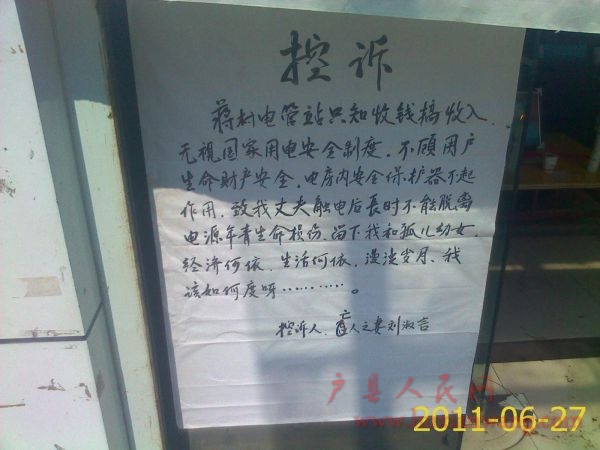 控诉
蒋村电管站只知收钱搞收入
无视国家用电安全制度,不顾用户
生命财产安全,电房内安全保护器不起
作用,致我丈夫触电后长时不能脱离
电源年青生命损伤,留下我和孤儿幼女,
经济何依,生活何依,漫漫岁月,我
该如何度呀…………。
控诉人,亡人之妻刘淑言
户县人民网
2011-06-27